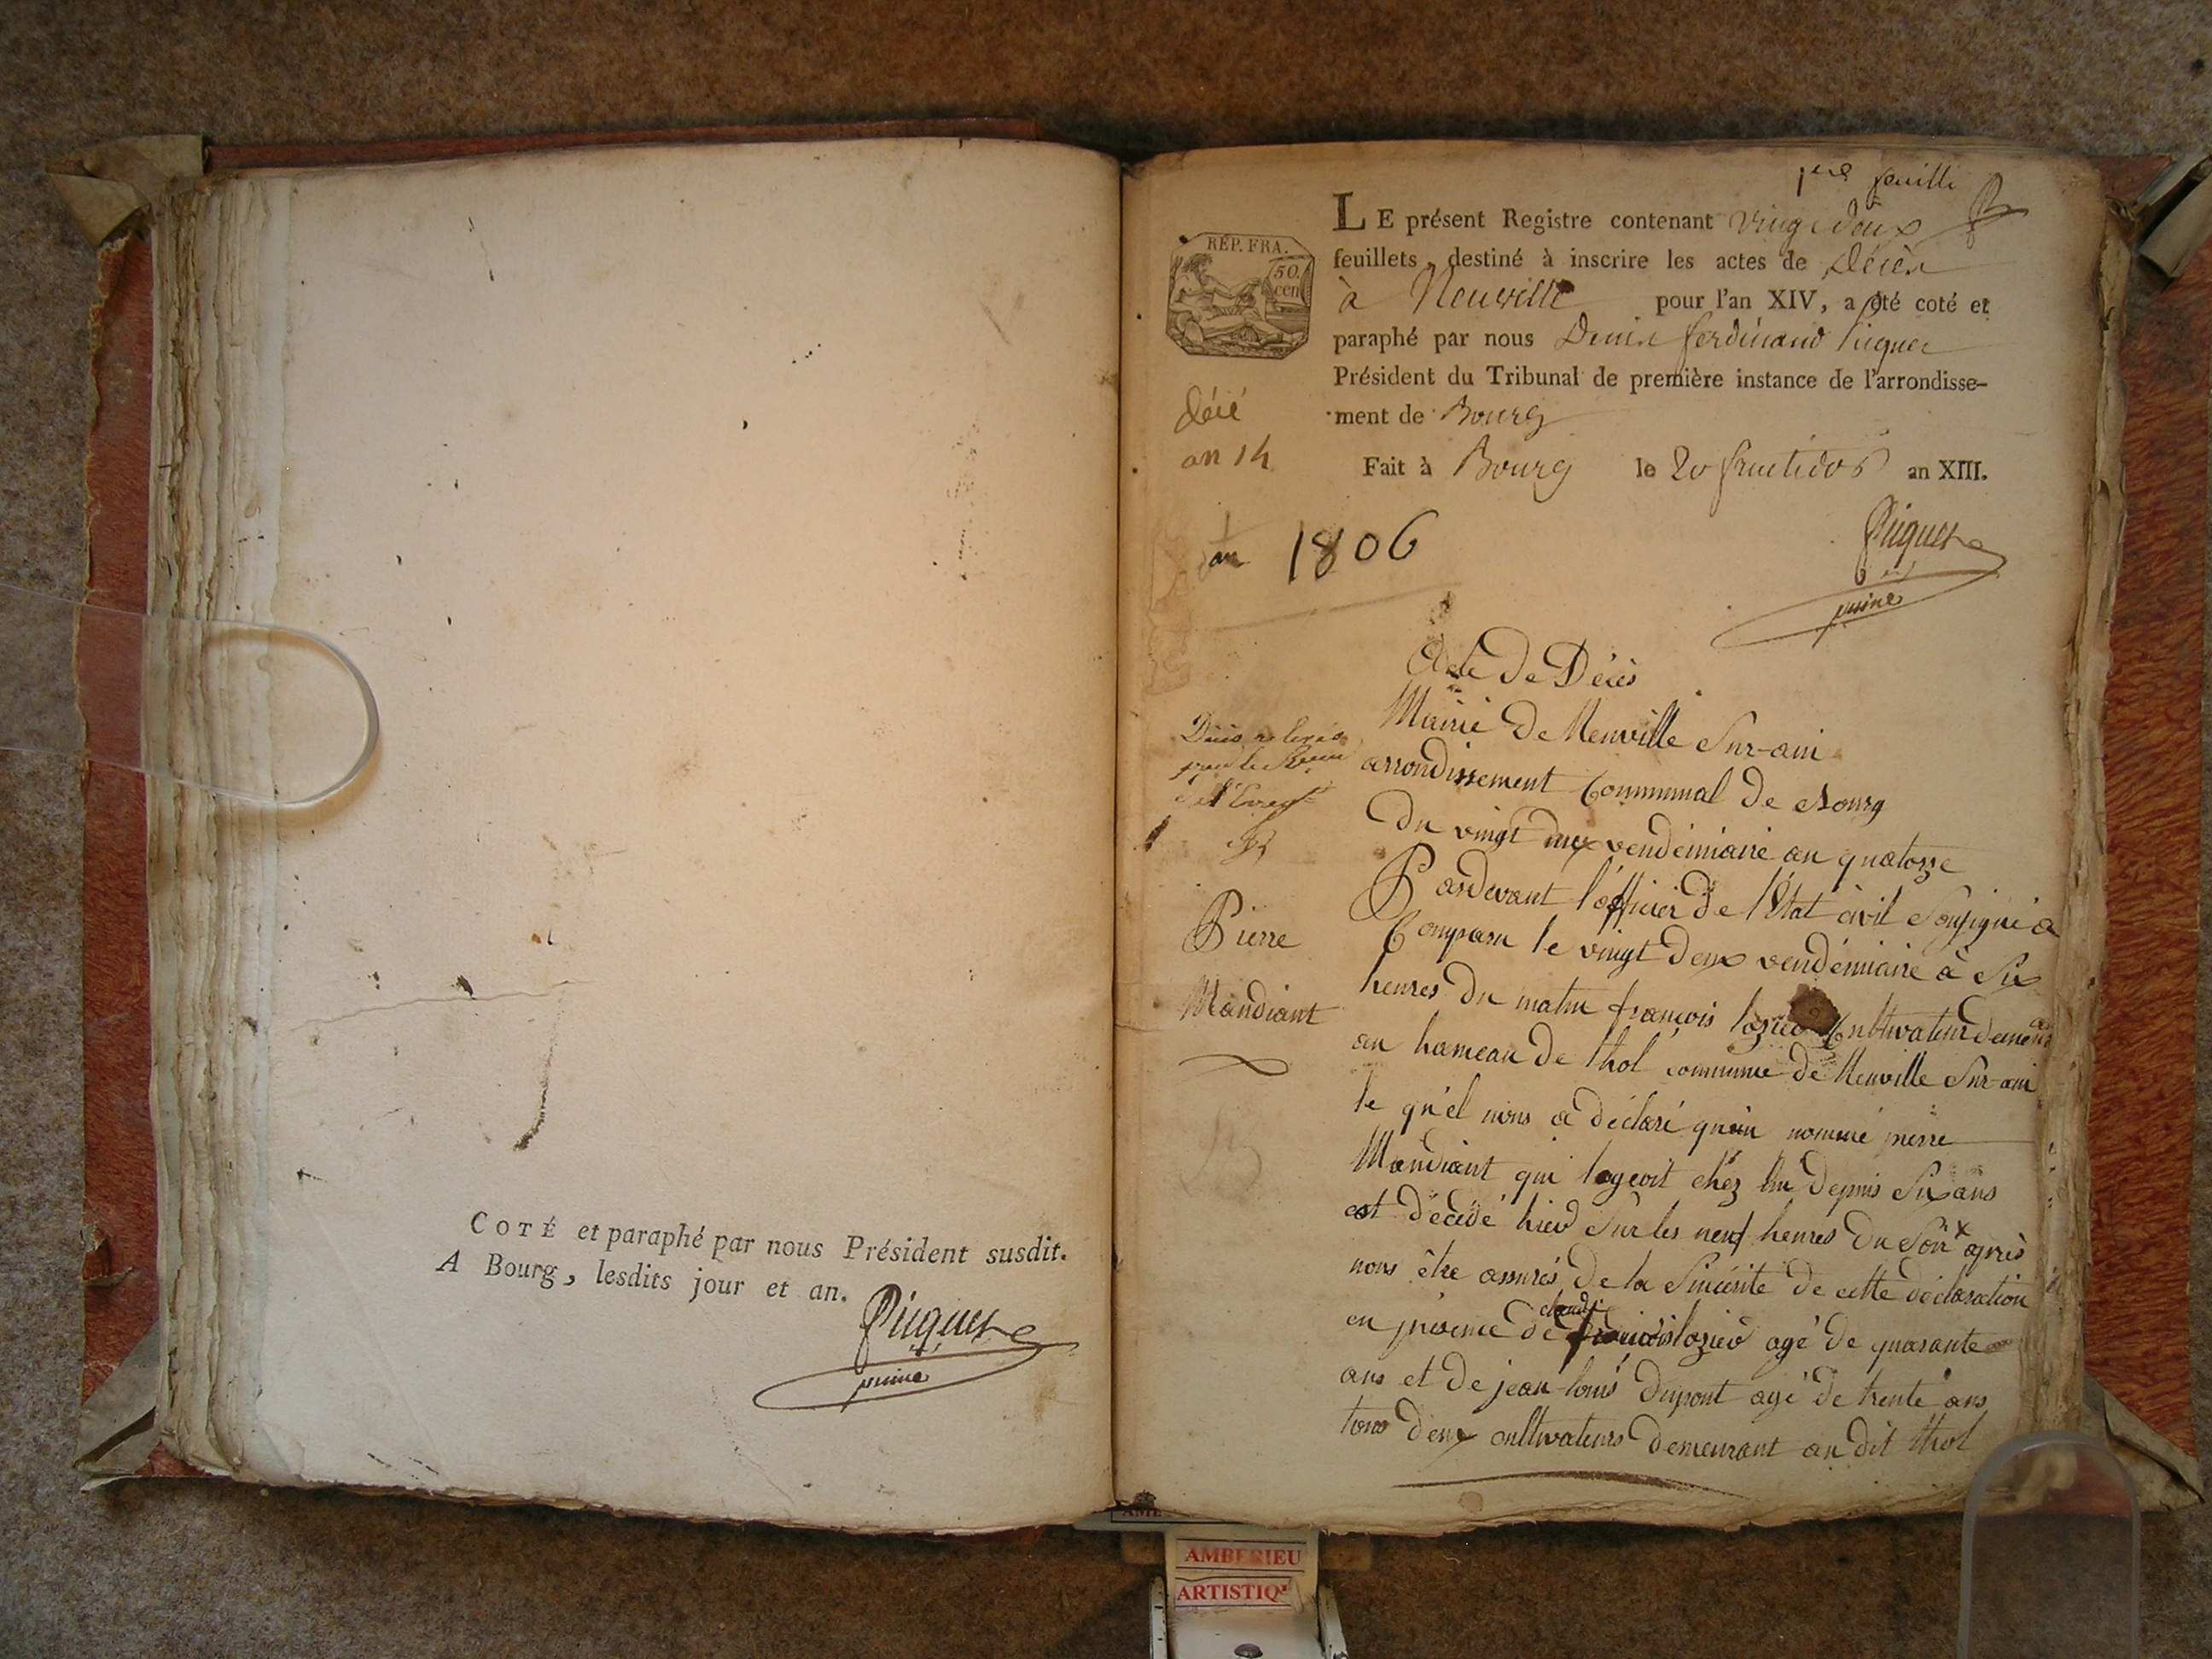 COTÉ et paraphé par nous Président susdit.
A Bourg, lesdits jour et an.
Piquet
1ere feuille
RÉP. FRA.
50
cen
LE présent Registre contenant vingt deux
feuillets, destiné à inscrire les actes de Décès
à Neuville pour l'an XIV, a été coté et
paraphé par nous Denis ferdinand Piquet
Président du Tribunal de première instance de l'arrondisse-
ment de Bourg
Fait à Bourg le 20 fructidor an XIII.
décé
an 14
an 1806
Piquet
Acte de Décès
Mairie de Neuville Sur-ain
arrondissement Communal de Bourg
Du vingt deux vendémiaire an quatorze
Pardevant l'officier de l'État civil Soussigné a
Comparu le vingt deux vendémiaire à Six
heures du matin françois lozier Cultivateur demeurant
au hameau de thol commune de Neuville Sur-ain
le qu'el nous a déclaré qu'un nommé pierre
Mandiant qui logeoit chez lui depuis Six ans
est décédé hier Sur les neuf heures du Soir x après
nous être assurés de la Sincérité de cette déclaration
en présence de claude lozier agé de quarante
ans et de jean-louis Dupont agé de trente ans
tous deux cultivateurs demeurant au dit thol
Décès relevés
par le
de l'Enregt
Pierre
Mandiant
AMBERIEU
ARTISTIQ